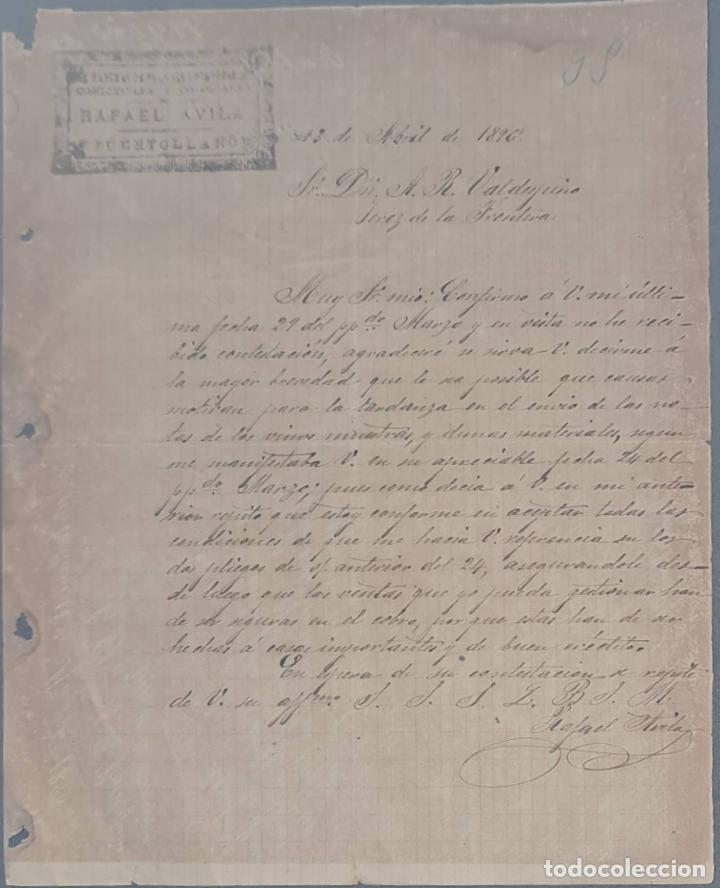 95
RAFAEL AVILA
PUERTOLLANO
13 de Abril de 1896.
Sr. Dn. A. R. Valdespino
Jerez de la Frontera.
Muy Sr. mio: Confirmo á V. mi últi-
ma fecha 29 del pp.do Marzo y en vista no he reci-
bido contestación, agradeceré se sirva V. decirme á
la mayor brevedad que le sea posible que causas
motivan para la tardanza en el envio de las no-
tas de los vinos muestras, y demas materiales, segun
me manifestaba V. en su apreciable fecha 24 del
pp.do Marzo; pues como decia á V. en mi ante-
rior repito que estoy conforme en aceptar todas las
condiciones de que me hacia V. referencia en los
dos pliegos de s/. anterior del 24, asegurandole des-
de luego que las ventas que yo pueda gestionar han
de ser seguras en el cobro, por que estas han de ser
hechas á casas importantes y de buen crédito.
En espera de su contestacion se repite
de V. su aff.mo S. S. S. L. B. S. M.
Rafael Avila
todocoleccion.net